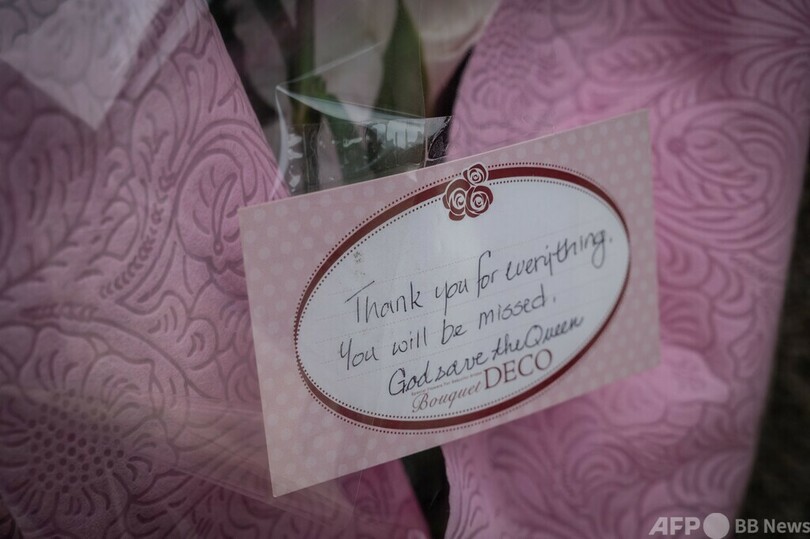 Thank you for everything.
You will be missed.
God save the Queen
Bouquet DECO
AFP BB News